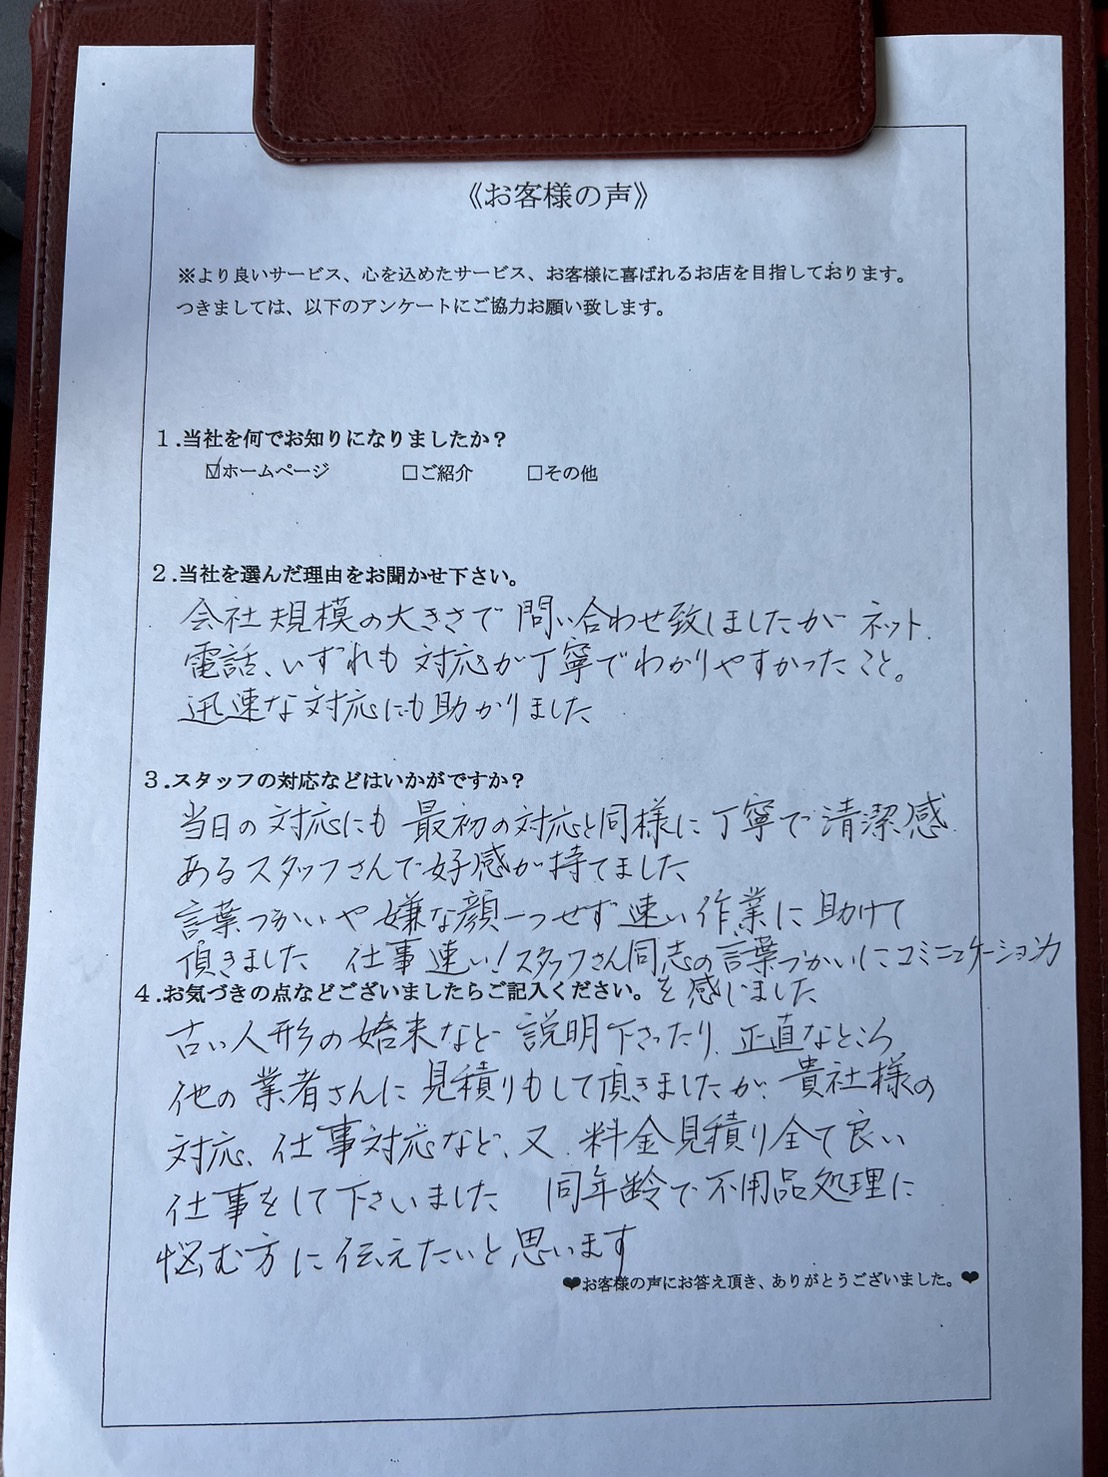 《お客様の声》
※より良いサービス、心を込めたサービス、お客様に喜ばれるお店を目指しております。
つきましては、以下のアンケートにご協力お願い致します。
1.当社を何でお知りになりましたか？
☑ホームページ □ご紹介 □その他
2.当社を選んだ理由をお聞かせ下さい。
会社規模の大きさで問い合わせ致しましたが ネット、
電話、いずれも対応が丁寧でわかりやすかったこと。
迅速な対応にも助かりました
3.スタッフの対応などはいかがですか？
当日の対応にも最初の対応と同様に丁寧で清潔感
あるスタッフさんで好感が持てました
言葉づかいや嫌な顔一つせず速い作業に助けて
頂きました 仕事速い！スタッフさん同志の言葉づかいにコミニュケーション力
を感じました
4.お気づきの点などございましたらご記入ください。
古い人形の始末など説明下さったり、正直なところ
他の業者さんに見積りもして頂きましたが、貴社様の
対応、仕事対応など、又、料金見積り全て良い
仕事をして下さいました 同年齢で不用品処理に
悩む方に伝えたいと思います
❤お客様の声にお答え頂き、ありがとうございました。❤